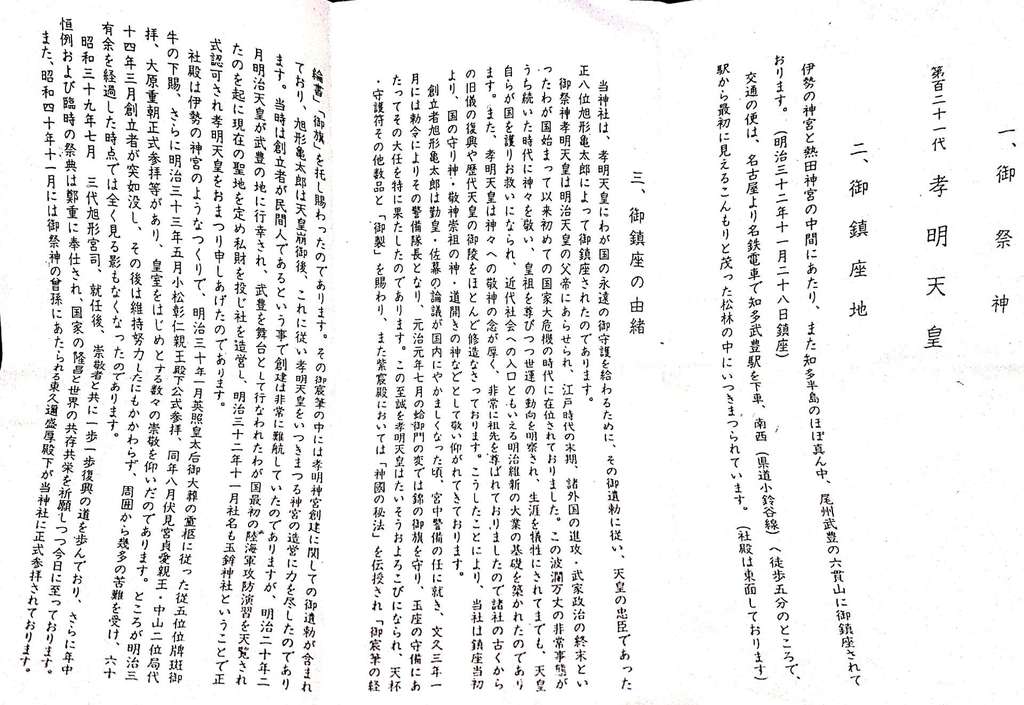 一、御祭神
第百二十一代 孝明天皇
二、御鎮座地
伊勢の神宮と熱田神宮の中間にあたり、また知多半島のほぼ真ん中、尾州武豊の六貫山に御鎮座されて
おります。（明治三十二年十一月二十八日鎮座）
交通の便は、名古屋より名鉄電車で知多武豊駅を下車、南西（県道小鈴谷線）へ徒歩五分のところで、
駅から最初に見えるこんもりと茂った松林の中にいつきまつられています。（社殿は東面しております）
三、御鎮座の由緒
当神社は、孝明天皇にわが国の永遠の御守護を給わるために、その御遺勅に従い、天皇の忠臣であった
正八位旭形亀太郎によって御鎮座されたのであります。
御祭神孝明天皇は明治天皇の父帝にあらせられ、江戸時代の末期、諸外国の進攻・武家政治の終末とい
ったわが国始まって以来初めての国家大危機の時代に在位されておりました。この波瀾万丈の非常事態が
うち続いた時代に神々を敬い、皇祖を尊びつつ世運の動向を明察され、生涯を犠牲にされてまでも、天皇
自らが国を護りお救いになられ、近代社会への入口ともいえる明治維新の大業の基礎を築かれたのであり
ます。また、孝明天皇は神々への敬神の念が厚く、非常に祖先を尊ばれておりましたので諸社の古くから
の旧儀の復興や歴代天皇の御陵をほとんど修造なさっております。こうしたことにより、当社は鎮座当初
より、国の守り神・敬神崇祖の神・道開きの神などとして敬い仰がれてきております。
創立者旭形亀太郎は勤皇・佐幕の論議が国内にやかましくなった頃、宮中警備の任に就き、文久三年一
月には勅令によりその警備隊長となり、元治元年七月の蛤御門の変では錦の御旗を守り、玉座の守備にあ
たってその大任を特に果たしたのであります。この至誠を孝明天皇はたいそうおよろこびになられ、天杯
・守護符その他数品と「御製」を賜わり、また紫宸殿においては「神國の秘法」を伝授され「御宸筆の経
綸書」「御旗」を托し賜わったのであります。その御宸筆の中には孝明神宮創建に関しての御遺勅が含まれ
ており、旭形亀太郎は天皇崩御後、これに従い孝明天皇をいつきまつる神宮の造営に力を尽したのであり
ます。当時は創立者が民間人であるという事で創建は非常に難航していたのでありますが、明治二十年二
月明治天皇が武豊の地に行幸され、武豊を舞台として行なわれたわが国最初の陸海軍攻防演習を天覧され
たのを起に現在の聖地を定め私財を投じ社を造営し、明治三十二年十一月社名も玉鉾神社ということで正
式認可され孝明天皇をおまつり申しあげたのであります。
社殿は伊勢の神宮のようなつくりで、明治三十年一月英照皇太后御大葬の霊柩に従った従五位位牌斑御
牛の下賜、さらに明治三十三年五月小松彰仁親王殿下公式参拝、同年八月伏見宮貞愛親王・中山二位局代
拝、大原重朝正式参拝等があり、皇室をはじめとする数々の崇敬を仰いだのであります。ところが明治三
十四年三月創立者が突如没し、その後は維持努力したにもかかわらず、周囲から幾多の苦難を受け、六十
有余を経過した時点では全く見る影もなくなったのであります。
昭和三十九年七月 三代旭形宮司、就任後、崇敬者と共に一歩一歩復興の道を歩んでおり、さらに年中
恒例および臨時の祭典は鄭重に奉仕され、国家の隆昌と世界の共存共栄を祈願しつつ今日に至っております。
また、昭和四十年十一月には御祭神の曾孫にあたられる東久邇盛厚殿下が当神社に正式参拝されております。